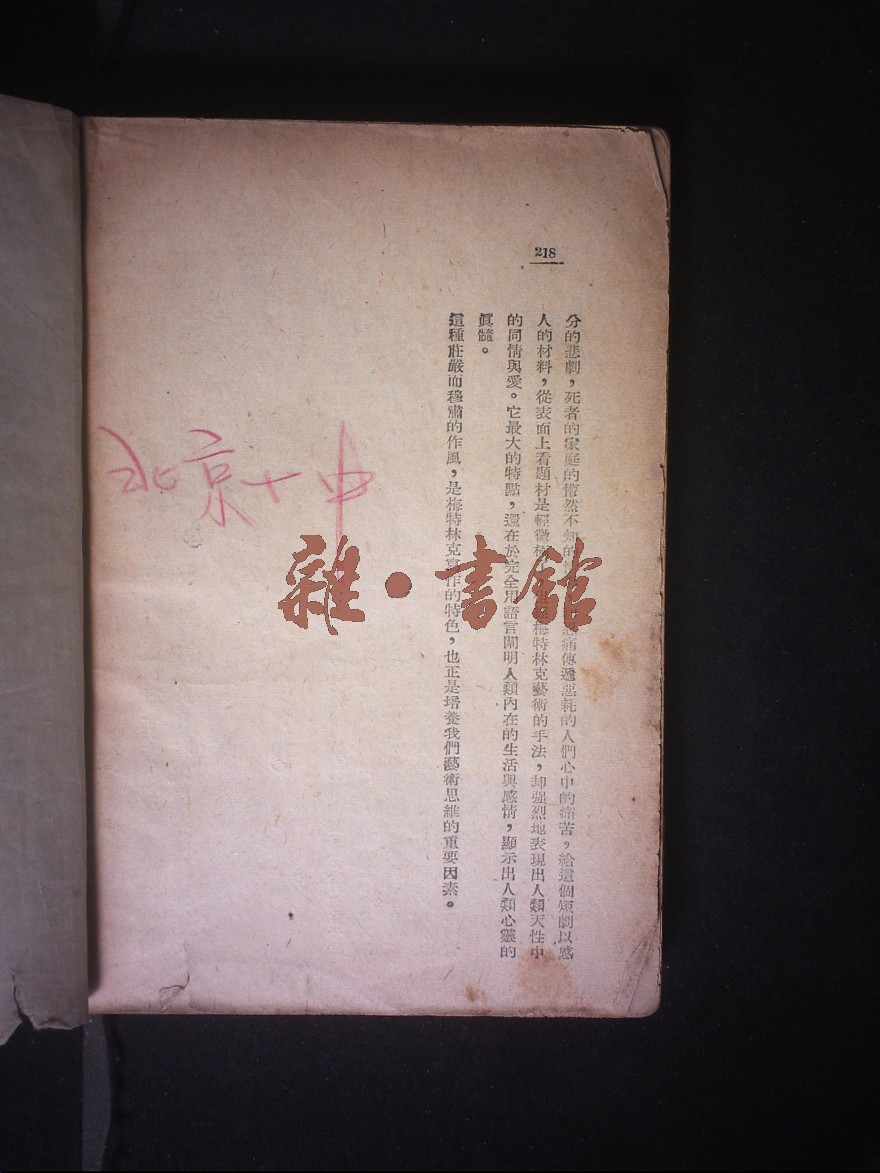 218
分的悲劇，死者的家庭的懵然不知的 痛傳遞惡耗的人們心中的痛苦，給這個短劇以感
人的材料，從表面上看題材是輕微 梅特林克藝術的手法，却强烈地表現出人類天性中
的同情與愛。它最大的特點，還在於完全用語言闡明人類內在的生活與感情，顯示出人類心靈的
眞髓。
這種莊嚴而穆肅的作風，是梅特林克寫作的特色，也正是培養我們藝術思維的重要因素。
北京十中
雜·書館